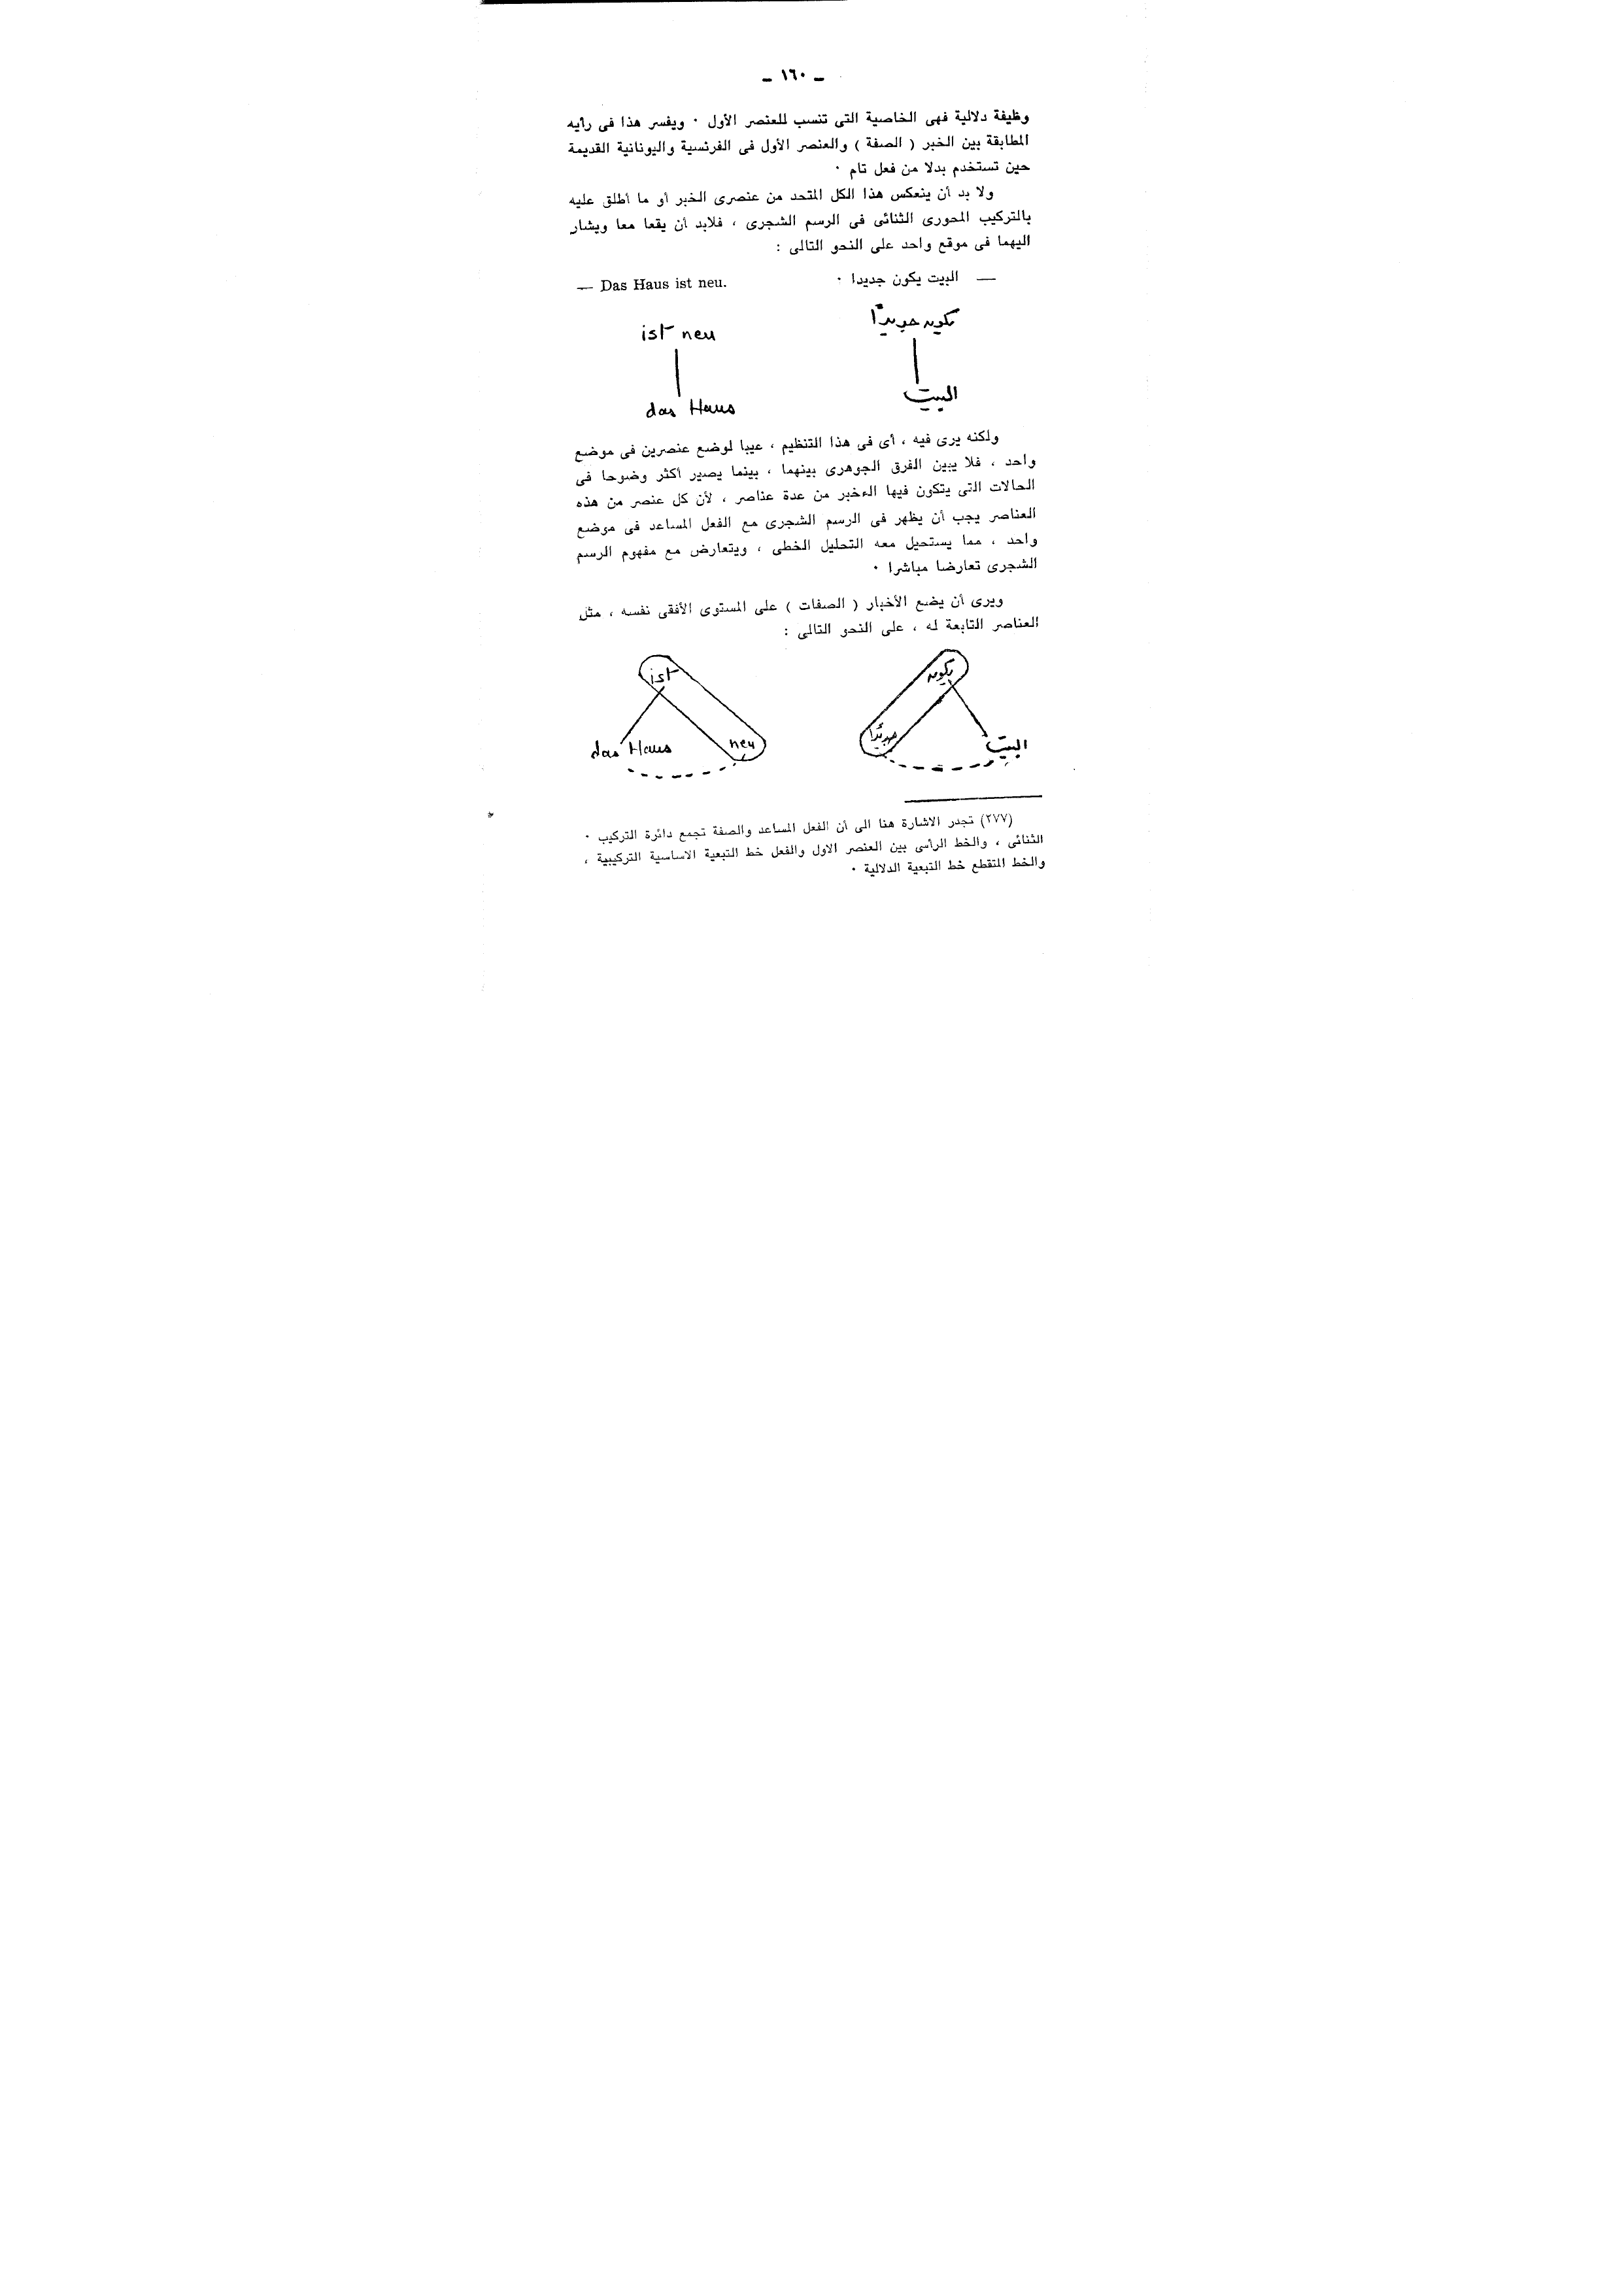 ـ ١٦٠ ـ
وظيفة دلالية فهى الخاصية التى تنسب للعنصر الأول ٠ ويفسر هذا فى رأيه
المطابقة بين الخبر ( الصفة ) والعنصر الأول فى الفرنسية واليونانية القديمة
حين تستخدم بدلا من فعل تام ٠
ولا بد أن ينعكس هذا الكل المتحد من عنصرى الخبر أو ما أطلق عليه
بالتركيب المحورى الثنائى فى الرسم الشجرى ، فلابد أن يقعا معا ويشار
اليهما فى موقع واحد على النحو التالى :
— البيت يكون جديدا ٠
— Das Haus ist neu.
يكون جديدًا
ist neu
البيت
das Haus
ولكنه يرى فيه ، أى فى هذا التنظيم ، عيبا لوضع عنصرين فى موضع
واحد ، فلا يبين الفرق الجوهرى بينهما ، بينما يصير أكثر وضوحا فى
الحالات التى يتكون فيها الخبر من عدة عناصر ، لأن كل عنصر من هذه
العناصر يجب أن يظهر فى الرسم الشجرى مع الفعل المساعد فى موضع
واحد ، مما يستحيل معه التحليل الخطى ، ويتعارض مع مفهوم الرسم
الشجرى تعارضا مباشرا ٠
ويرى أن يضع الأخبار ( الصفات ) على المستوى الأفقى نفسه ، مثل
العناصر التابعة له ، على النحو التالى :
يكون
ist
البيت
جديدًا
neu
das Haus
(٢٧٧) تجدر الاشارة هنا الى أن الفعل المساعد والصفة تجمع دائرة التركيب ٠
الثنائى ، والخط الرأسى بين العنصر الاول والفعل خط التبعية الاساسية التركيبية ،
والخط المتقطع خط التبعية الدلالية ٠